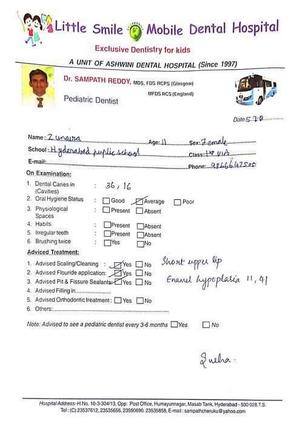 Little Smile Mobile Dental Hospital
Exclusive Dentistry for kids
A UNIT OF ASHWINI DENTAL HOSPITAL (Since 1997)
Dr. SAMPATH REDDY, MDS, FDS RCPS (Glasgow)
MFDS RCS (England)
Pediatric Dentist
Date:
Name: Age: 11 Sex: Female
School: Hyderabad public school Class:
E-mail: Phone:
On Examination:
1. Dental Caries in (Cavities) 36, 16
2. Oral Hygiene Status Good Average Poor
3. Physiological Spaces Present Absent
4. Habits Present Absent
5. Irregular teeth Present Absent
6. Brushing twice Yes No
Adviced Treatment:
1. Advised Scaling/Cleaning: Yes No Short upper lip
2. Advised Flouride application: Yes No Enamel hypoplasia 11, 41
3. Advised Pit & Fissure Sealants Yes No
4. Advised Filling in
5. Advised Orthodontic treatment: Yes No
6. Others:
Note: Advised to see a pediatric dentist every 3-6 months Yes No
Hospital Address- H.No. 10-3-304/13, Opp: Post Office, Humayunnagar, Masab Tank, Hyderabad - 500 028 T.S.
Tel: (C) 23537612, 23535656, 23590690, 23535858, E-mail: sampathcheruku@yahoo.com